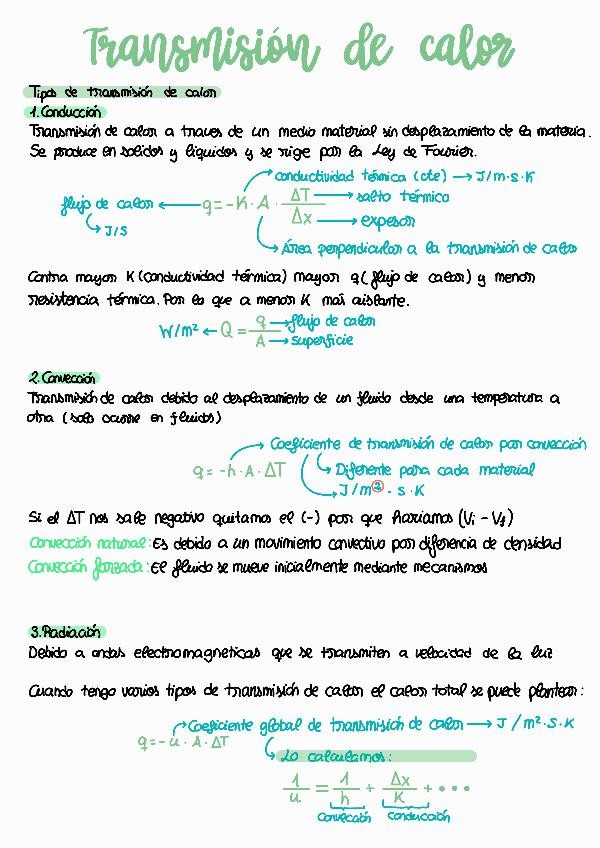 Transmisión de calor
Tipos de transmisión de calor
1. Conducción
Transmisión de calor a traves de un medio material sin desplazamiento de la materia.
Se produce en solidos y liquidos y se rige por la Ley de Fourier.
conductividad térmica (cte) → J/m·s·K
flujo de calor ← q = -K · A · ΔT/Δx → salto térmico
→ espesor
J/s
Área perpendicular a la transmisión de calor
Contra mayor K (conductividad térmica) mayor q (flujo de calor) y menor
resistencia térmica. Por lo que a menor K mas aislante.
W/m² ← Q = q/A → flujo de calor
→ superficie
2. Convección
Transmisión de calor debido al desplazamiento de un fluido desde una temperatura a
otra (solo ocurre en fluidos)
Coeficiente de transmisión de calor por convección
q = -h · A · ΔT
Diferente para cada material
J/m² · s · K
Si el ΔT nos sale negativo quitamos el (-) por que hariamos (Vi - Vf)
Convección natural: Es debido a un movimiento convectivo por diferencia de densidad
Convección forzada: El fluido se mueve inicialmente mediante mecanismos
3. Radiación
Debido a ondas electromagneticas que se transmiten a velocidad de la luz
Cuando tengo varios tipos de transmisión de calor el calor total se puede plantear:
Coeficiente global de transmisión de calor → J / m² · S · K
q = - u · A · ΔT
Lo calculamos:
1/u = 1/h + Δx/K + ...
convección conducción